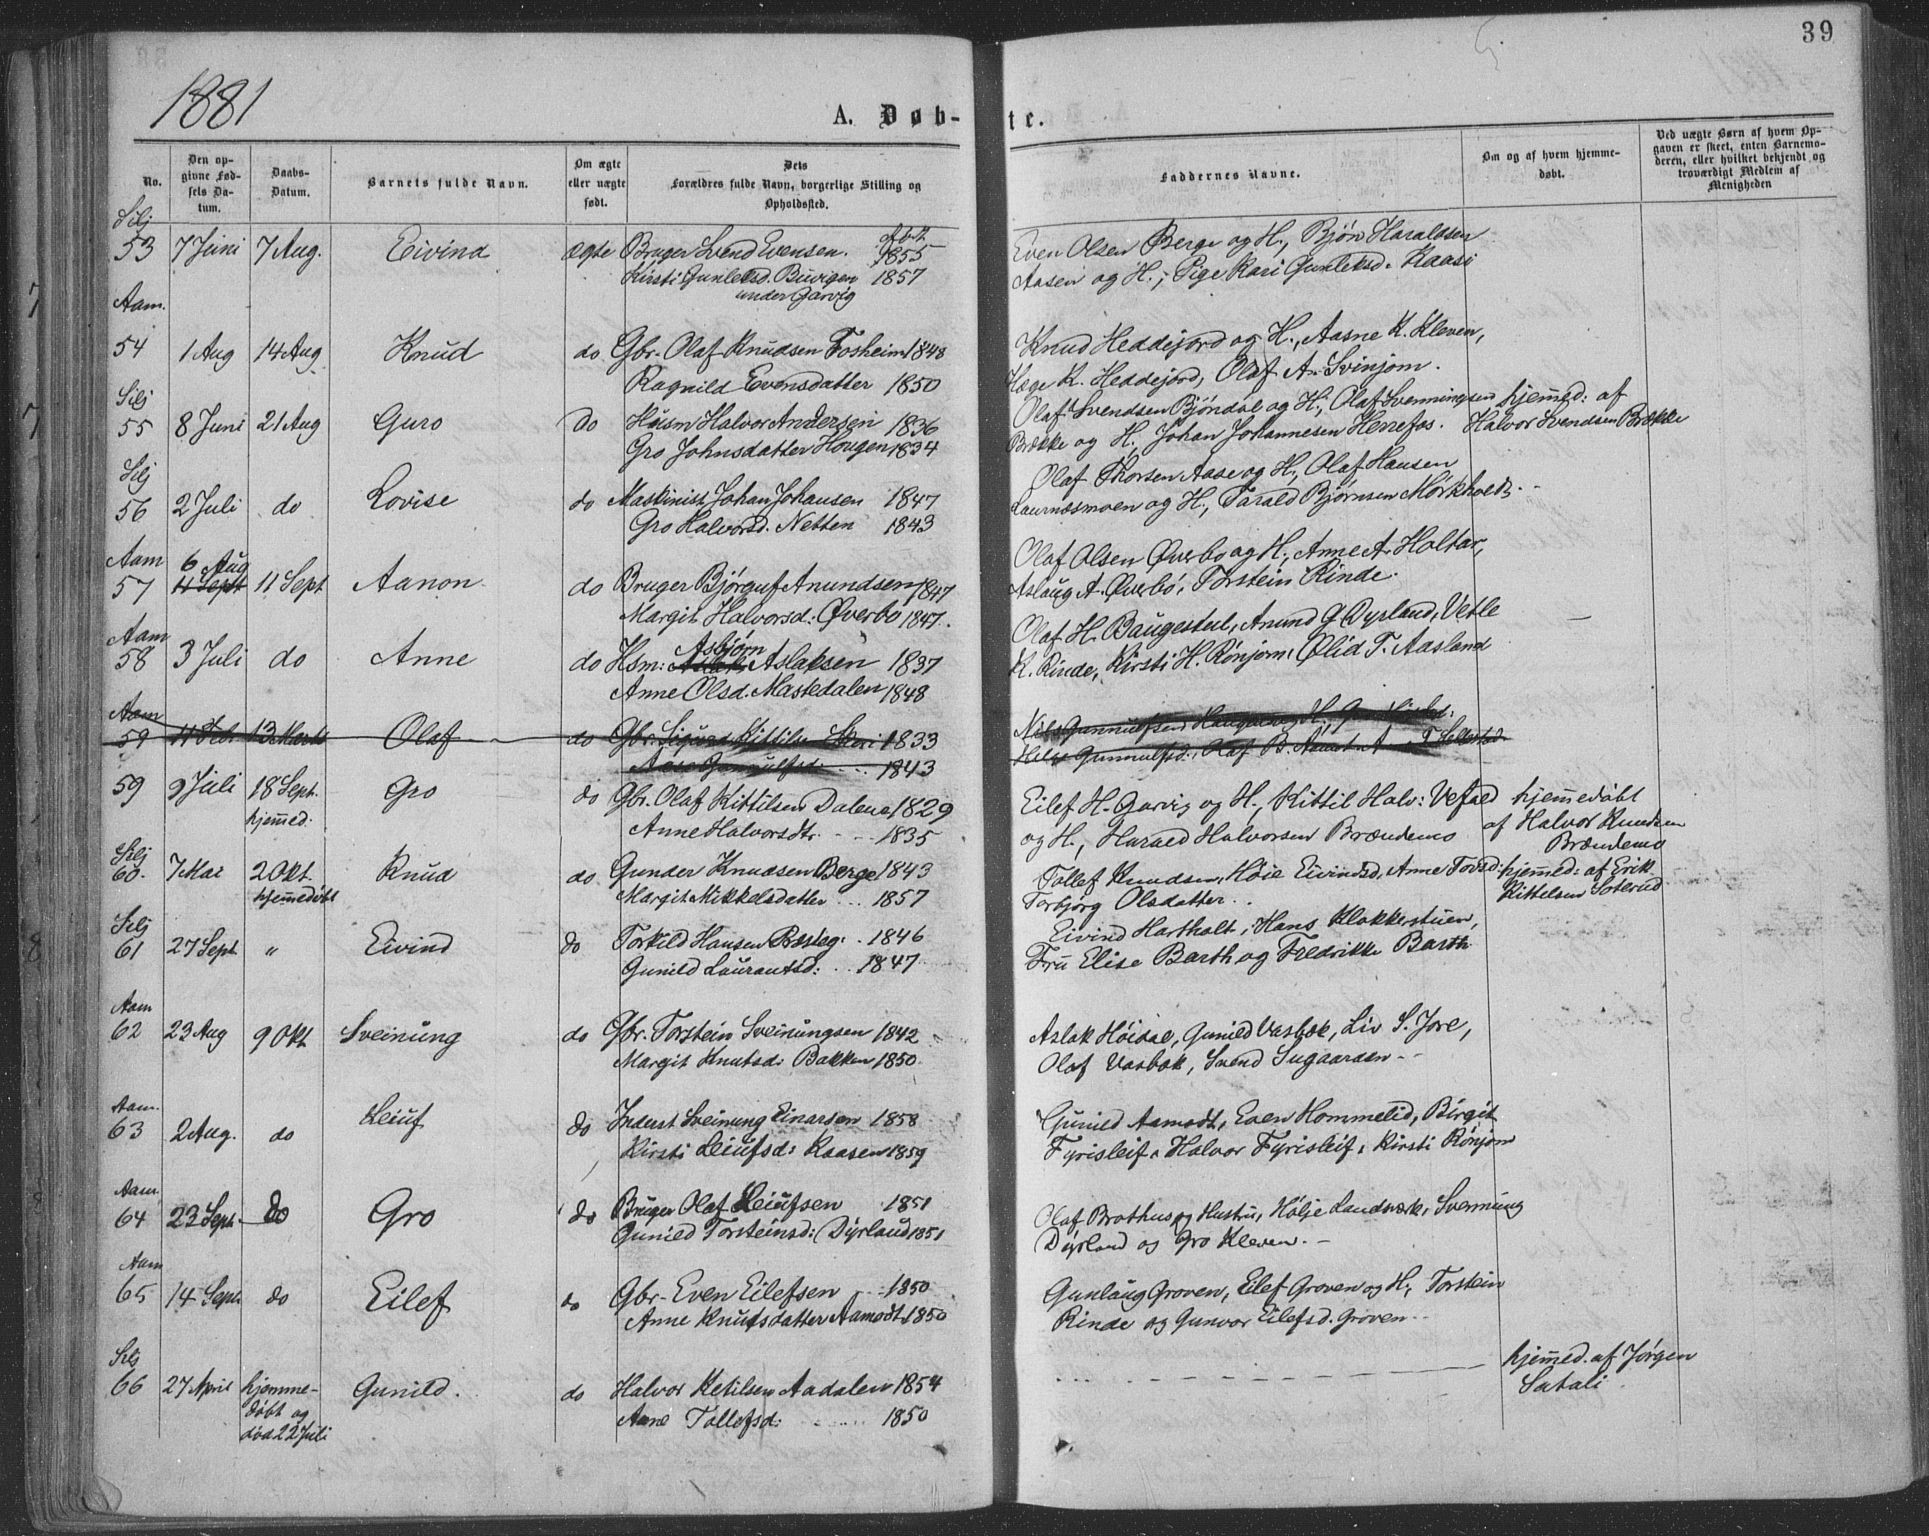 39
1881
A. Døb-
te.
No.
Den op-
givne Fød-
sels Da-
tum.
Daabs-
Datum.
Barnets fulde Navn.
Om ægte
eller uægte
født.
Dets
Forældres fulde Navn, borgerlige Stilling og
Opholdssted.
Faddernes Navne.
Om og af hvem hjemme-
døbt.
Ved uægte Børn af hvem Op-
gaven er skeet, enten Barnemo-
deren, eller hvilket bekjendt og
troværdigt Medlem af
Menigheden
Silj
53 7 Juni 7 Aug. Eivind ægte Bruger Svend Evensen. 1855
Kirsti Gunleksd. Buvigen 1857
under Garvig
Even Olsen Berge og H., Bjøn Haraldsen
Aasen og H.; Pige Kari Gunleksd. Kaasi
Aam.
54 1 Aug 14 Aug Knud do Gbr. Olaf Knudsen Fosheim 1848
Ragnild Evensdatter 1850
Knud Heddejord og H., Aasne K. Kleven,
Hæge K. Heddejord, Olaf A. Svinjom.
Silj
55 8 Juni 21 Aug Guro do Húsm Halvor Andersen 1836
Gro Johnsdatter Hougen 1834
Olaf Svendsen Bjöndal og H., Olaf Svenningsen hjemmed: af
Brække og H., Johan Johannesen Herrefos. Halvor Svendsen Brække
Silj
56 2 Juli do Lovise do Maskinist Johan Johansen 1847
Gro Halvorsd. Netten 1843
Olaf Thorsen Aase og H., Olaf Hansen
og H., Tarald Bjørnsen Mørkholt
Aam 6 Aug
57 11 Sept 11 Sept Aanon do Bruger Bjørguf Anundsen 1847
Margit Halvorsd: Øverbø 1847.
Olaf Olsen Øverbø og H., Anne A. Holtar,
Aslaug A. Øverbö, Torstein Rinde.
Aam
58 3 Juli do Anne do Hsm: Asbjørn Aslak Aslaksen 1837
Anne Olsd. Mastedalen 1848
Olaf H. Baugestul, Anund G Dyrland, Vetle
K. Rinde, Kirsti H. Rönjom, Ølid T. Aasland
Aam
59 11 Febr 13 Marts Olaf do Gbr. Sigurd Kittilsen 1833
Aase Gunnulfsd. 1843
Gunnulfsd. Olaf B.
59 9 Juli 18 Sept. Gro do Gbr. Olaf Kittilsen Dalene 1829
hjemmed. Anne Halvorsdtr. 1835
Eilef H. Garvig og H., Kittil Halv: Vefald hjemmedøbt
og H., Harald Halvorsen Brændemo af Halvor Knudsen
Brændemo
Silj
60. 7 Mai 2 Okt. Knud do Gunder Knudsen Berge 1843
hjemmedøbt Margit Mikkelsdatter 1857
Tollef Knudsen, Höie Eivindsd, Anne Torsd. hjemmed: af Erik
Torbjörg Olsdatter. Kittelsen Soterud
Silj
61 27 Sept. " Eivind do Torkild Hansen Bæsteg. 1846
Gunild Laurantsd: 1847
Eivind Hartholt, Hans Klokkerstuen,
Fru Elise Barth og Fredrikke Barth
Aam
62 23 Aug 9 Okt Sveinung do Gbr. Torstein Sveinungsen 1842
Margit Knutsd: Bakken 1850
Aslak Höidal, Gunild Vasbæk, Liv S. Jore,
Olaf Vasbæk, Svend Sugaarden
Aam.
63 2 Aug. do Leiuf do Inderst Sveinung Einarsen 1858
Kirsti Leiufsd: Kaasen 1859
Gunild Aamodt, Even Hommelid, Birgit
Fyrisleif, Halvor Fyrisleif, Kirsti Rönjom
Aam.
64 23 Sept. do Gro do Bruger Olaf Leiufsen 1851
Gunild Torsteinsd: Dyrland 1851
Olaf Brothus og Hustru, Hölje Landsverk, Svennung
Dyrland og Gro Kleven.
Aam
65 14 Sept. do Eilef do Gbr. Even Eilefsen 1850
Anne Knutsdatter Aamodt 1850
Gunlaug Groven, Eilef Groven og H., Torstein
Rinde og Gunvor Eilefsd. Groven
Silj
66 27 April hjemme- Gunild. do Halvor Ketilsen Aadalen 1854
døbt og Anne Tollefsd: 1850
død 22 Juli
hjemmed. af Jørgen
Satali